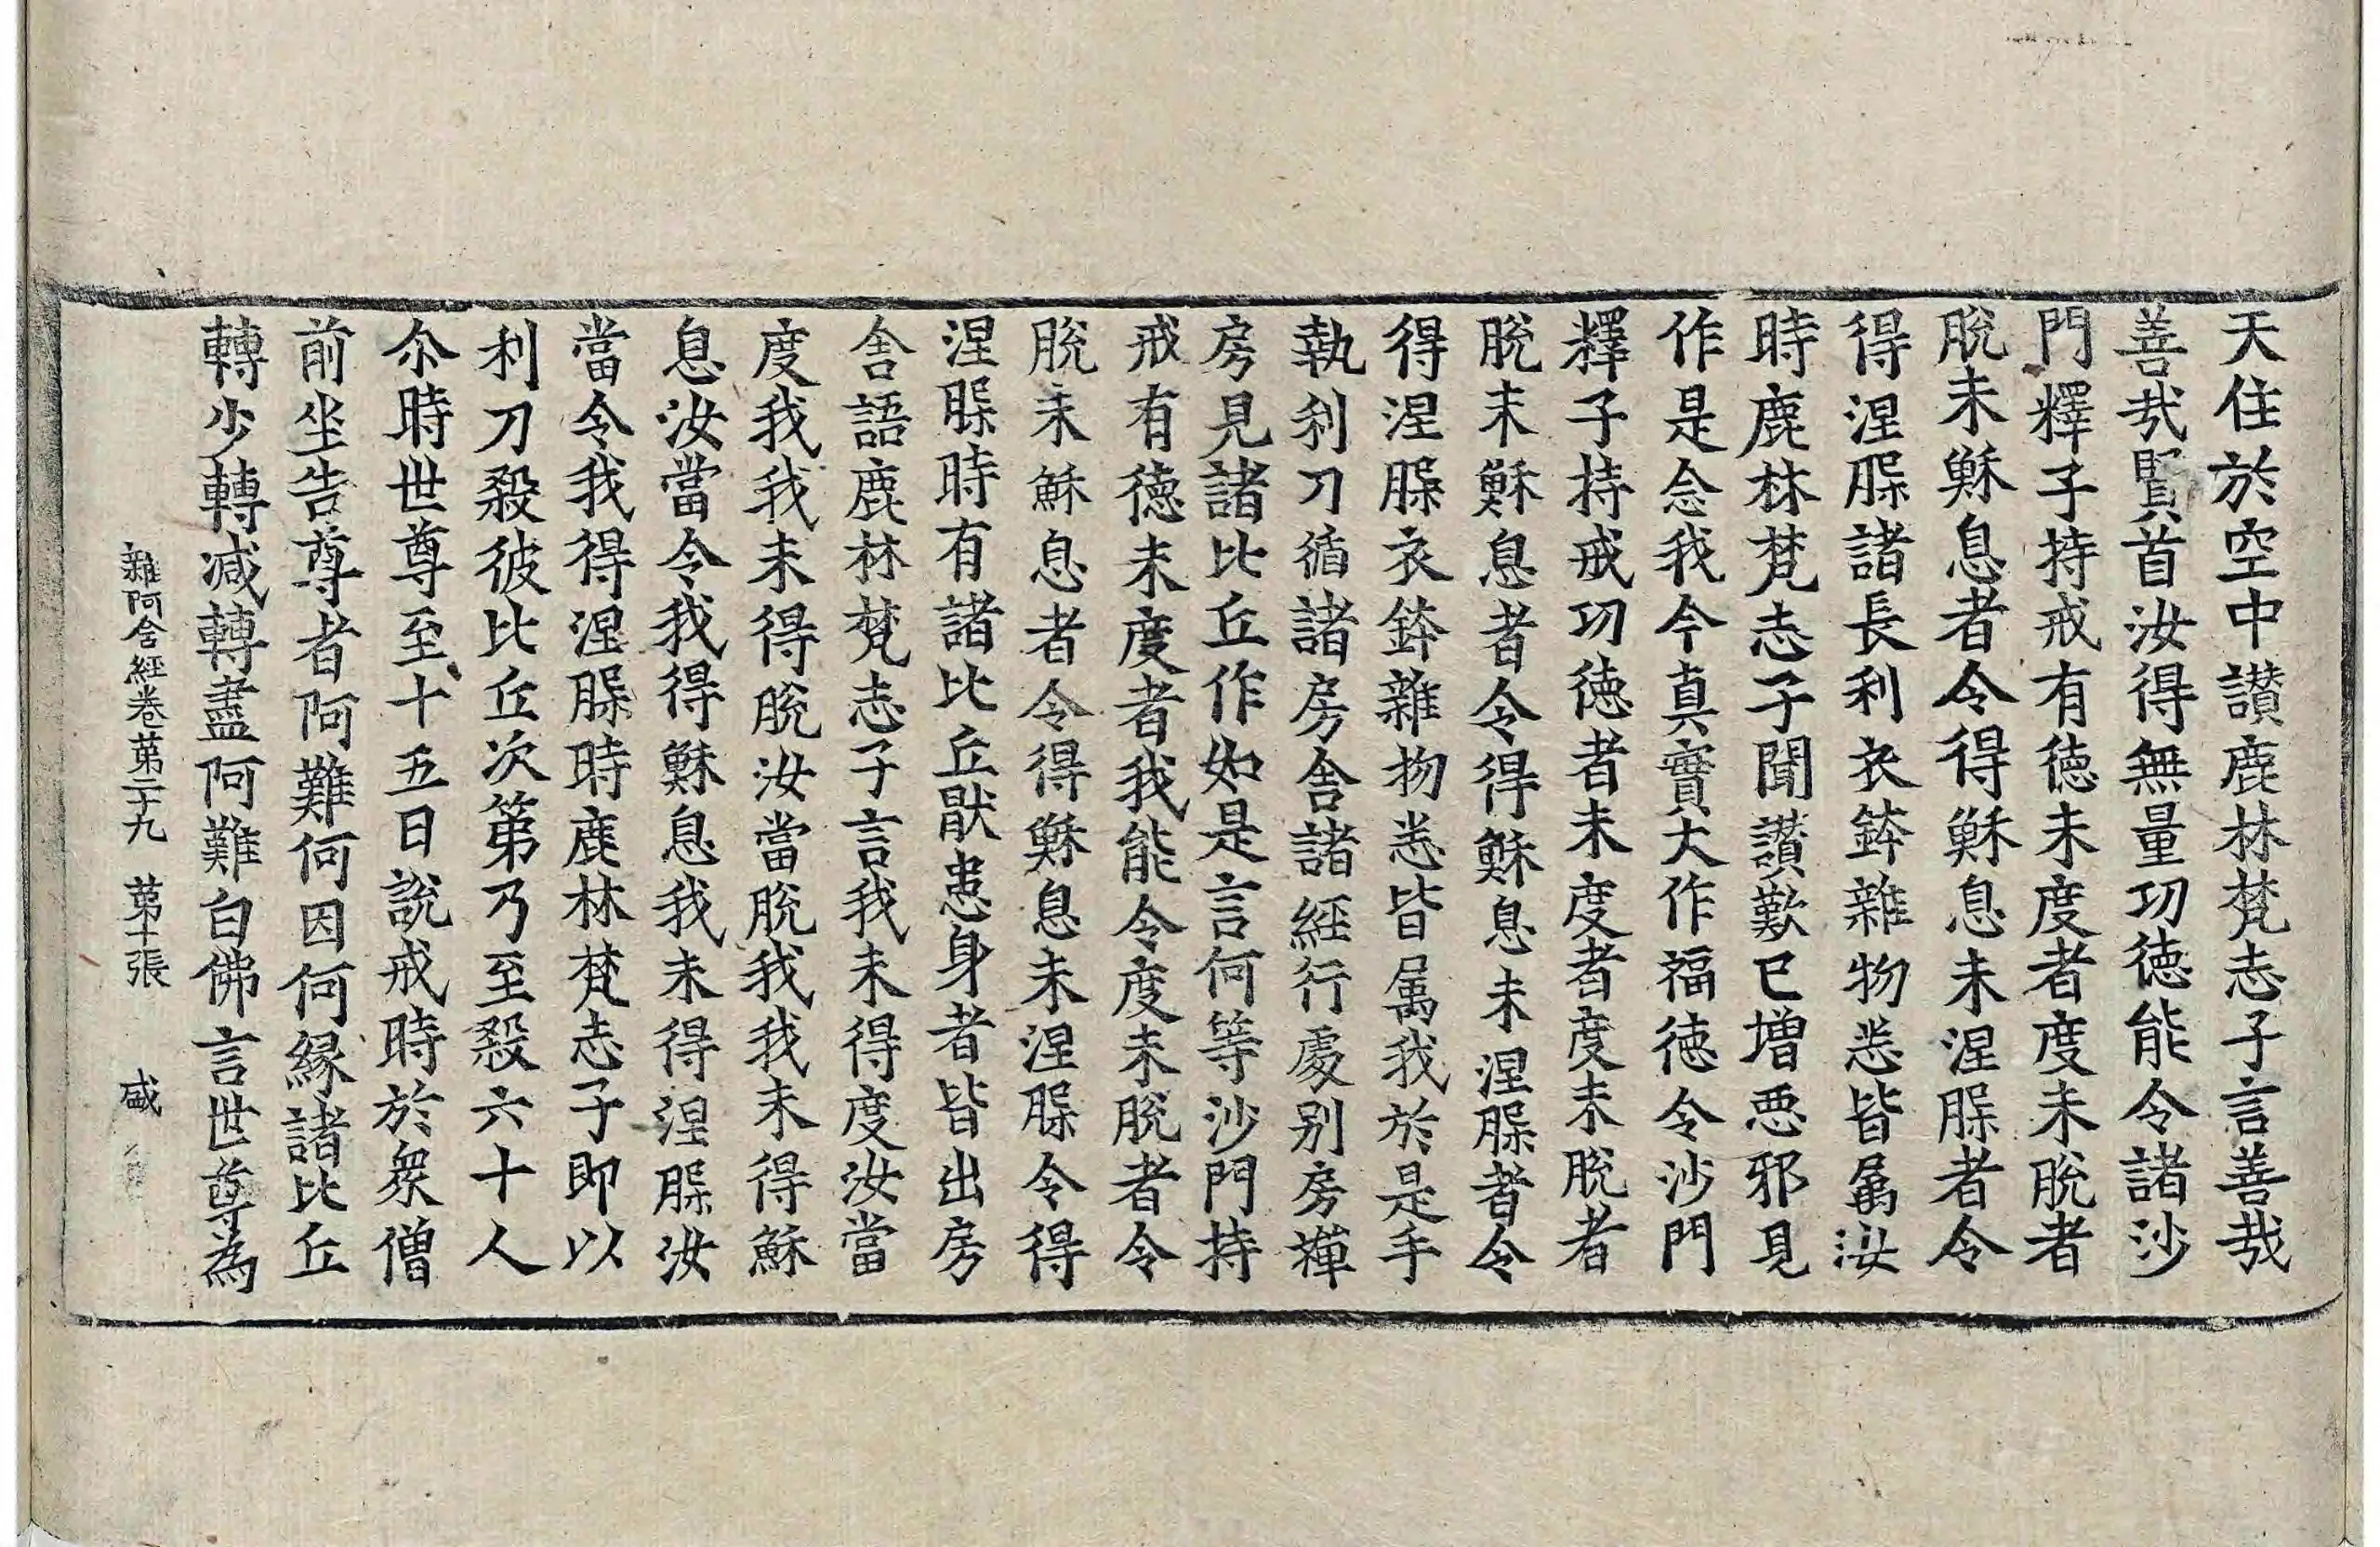 天住於空中讃鹿林梵志子言善哉
善哉賢首汝得無量功徳能令諸沙
門釋子持戒有徳未度者度未脫者
脫未穌息者令得穌息未涅槃者令
得涅槃諸長利衣鉢雜物悉皆屬汝
時鹿林梵志子聞讃歎已增惡邪見
作是念我今真實大作福徳令沙門
釋子持戒功徳者未度者度未脫者
脫未穌息者令得穌息未涅槃者令
得涅槃衣鉢雜物悉皆屬我於是手
執利刀循諸房舍諸經行處别房禪
房見諸比丘作如是言何等沙門持
戒有徳未度者我能令度未脫者令
脫未穌息者令得穌息未涅槃令得
涅槃時有諸比丘猒患身者皆出房
舍語鹿林梵志子言我未得度汝當
度我我未得脫汝當脫我我未得穌
息汝當令我得穌息我未得涅槃汝
當令我得涅槃時鹿林梵志子即以
利刀殺彼比丘次第乃至殺六十人
尒時世尊至十五日說戒時於衆僧
前坐告尊者阿難何因何縁諸比丘
轉少轉减轉盡阿難白佛言世尊為
雜阿含經卷第二十九 第十張 盛